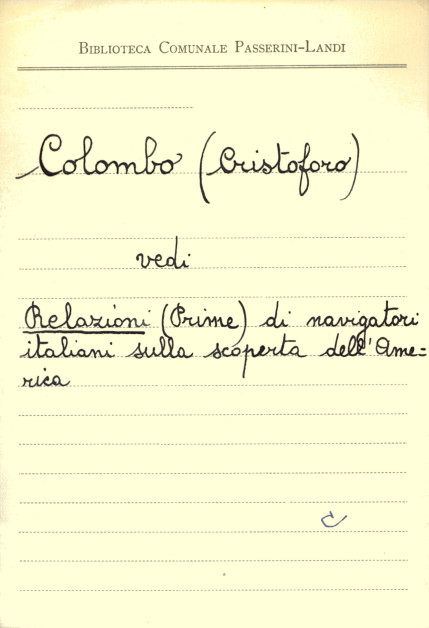 BIBLIOTECA COMUNALE PASSERINI-LANDI
Colombo (Cristoforo)
vedi
Relazioni (Prime) di navigatori
italiani sulla scoperta dell'Ame=
rica